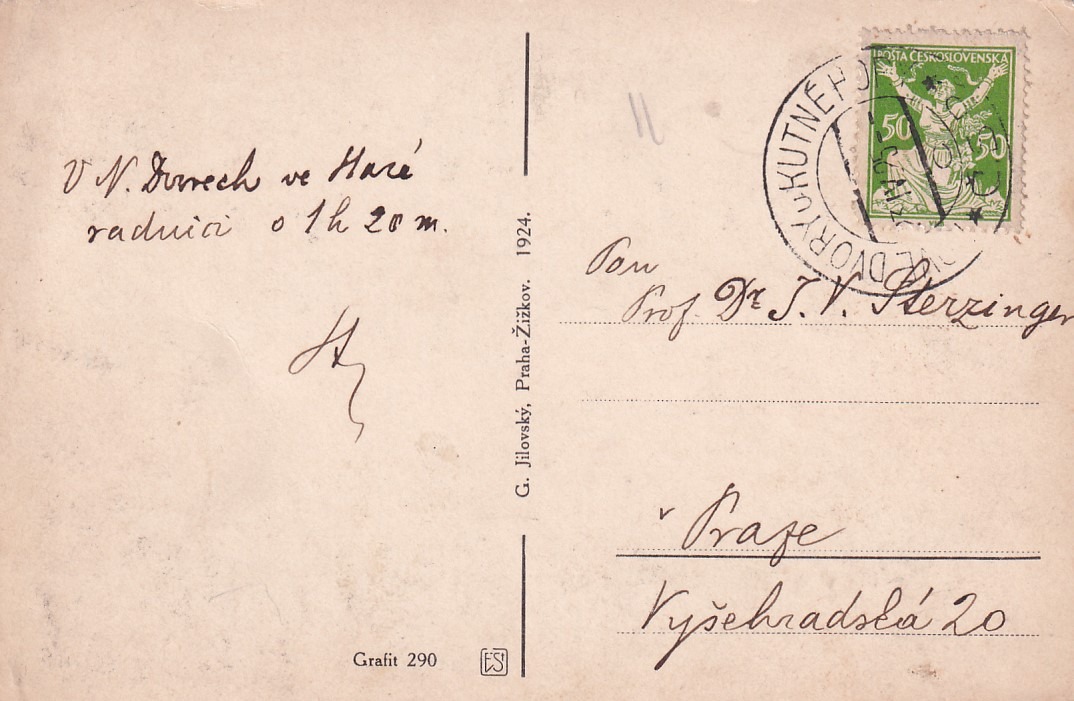 V N. Dvorech ve Staré
radnici o 1 h 20 m.
St
G. Jilovský, Praha-Žižkov. 1924.
Grafit 290
POŠTA ČESKOSLOVENSKÁ
50 50
NOVÉ DVORY U KUTNÉ HORY
Pan
Prof. Dr. J. V. Sterzinger
v Praze
Vyšehradská 20